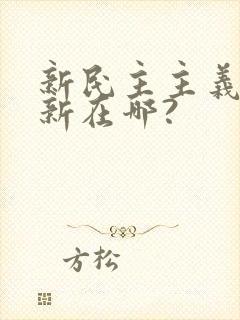 新民主主義
新在哪?
方松